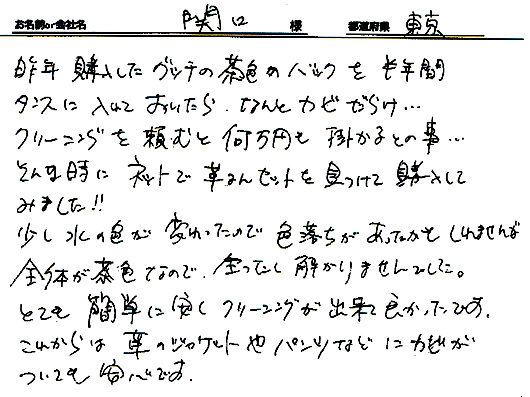 お名前or会社名 関口 様 都道府県 東京
昨年 購入したグッチの茶色のバックを半年間
タンスに入れておいたら、なんとカビだらけ…
クリーニングを頼むと何万円も掛かるとの事…
そんな時にネットで革るんセットを見つけて購入して
みました!!
少し水の色が変わったので色落ちがあったかもしれませんが
全体が茶色なので、全ったく解かりませんでした。
とても簡単に安くクリーニングが出来て良かったです。
これからは革のジャケットやパンツなどにカビが
ついても安心です。